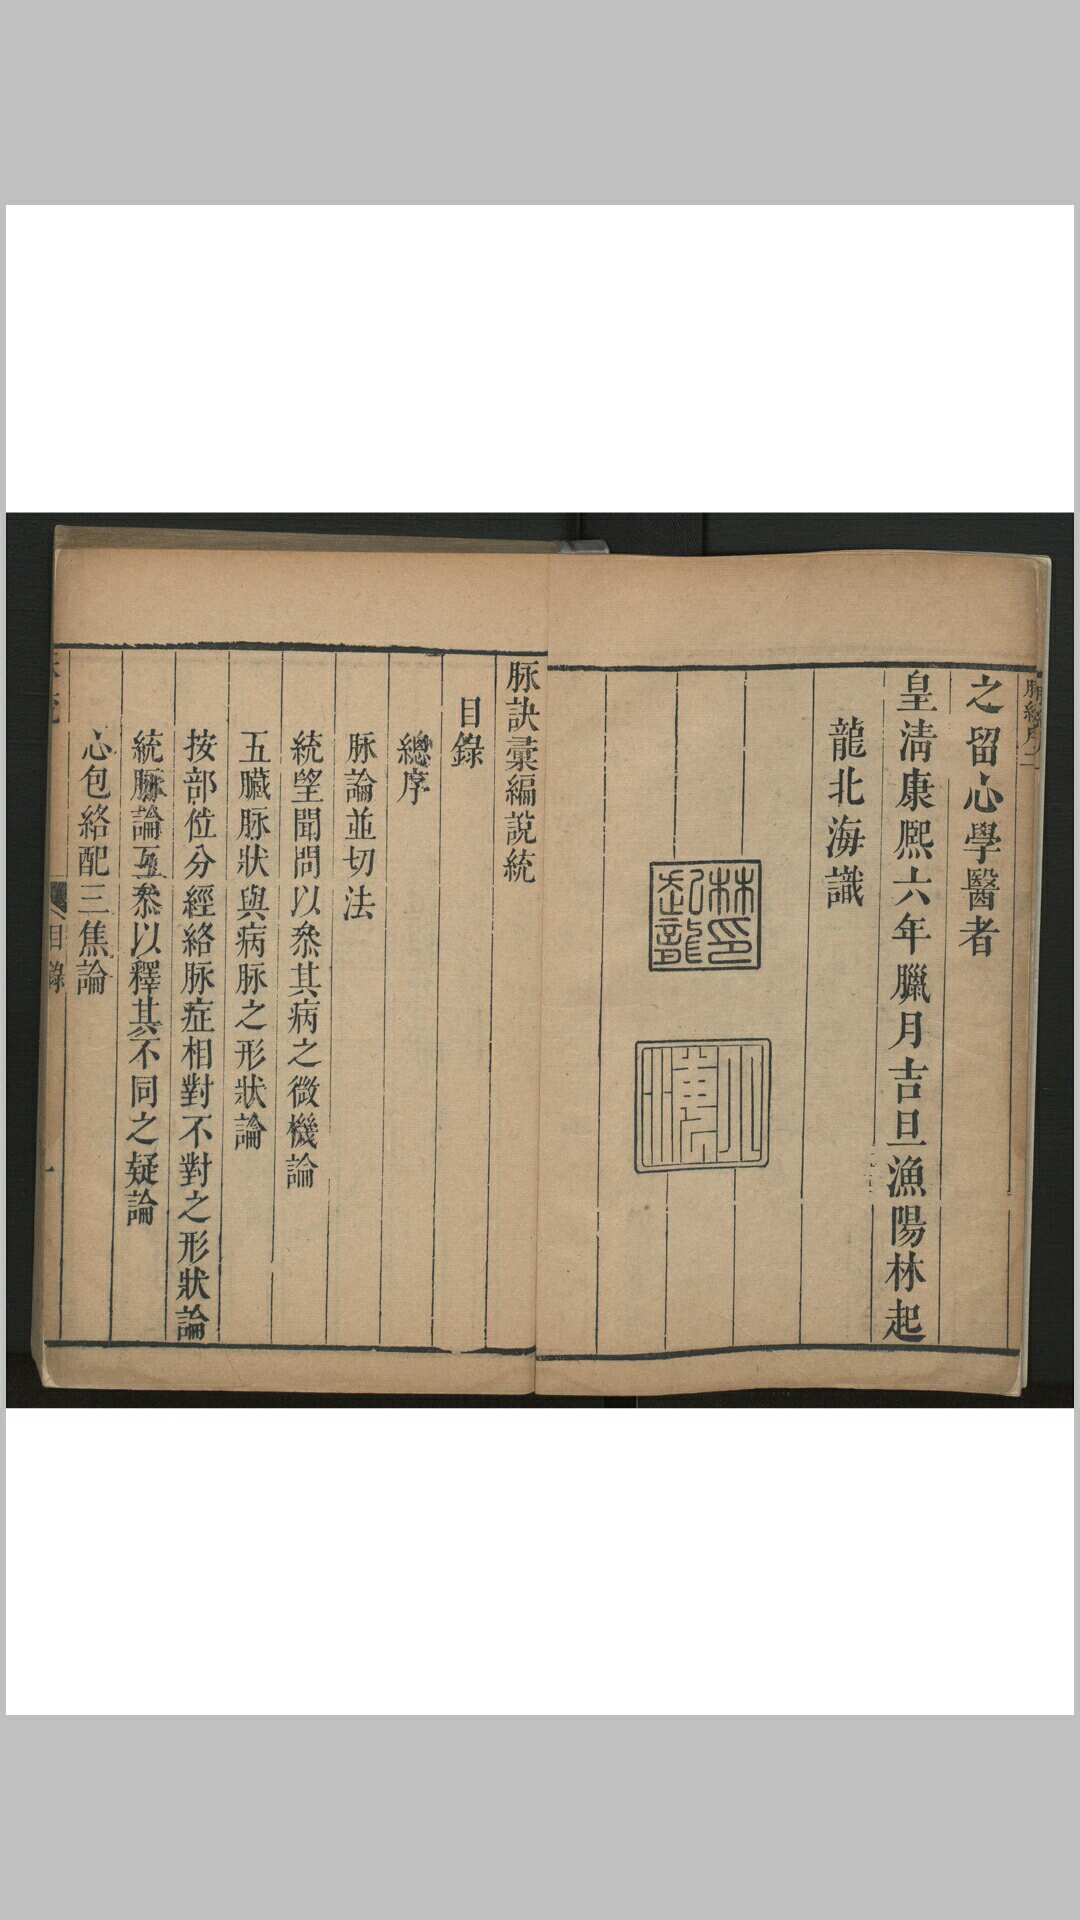 之留心學醫者
皇清康熙六年臘月吉旦漁陽林起
龍北海識
林印起龍
北海
脉訣彙編說統
目錄
總序
脉論並切法
統望聞問以叅其病之微機論
五臟脉狀與病脉之形狀論
按部位分經絡脉症相對不對之形狀論
統脉論互叅以釋其不同之疑論
心包絡配三焦論
目錄
一